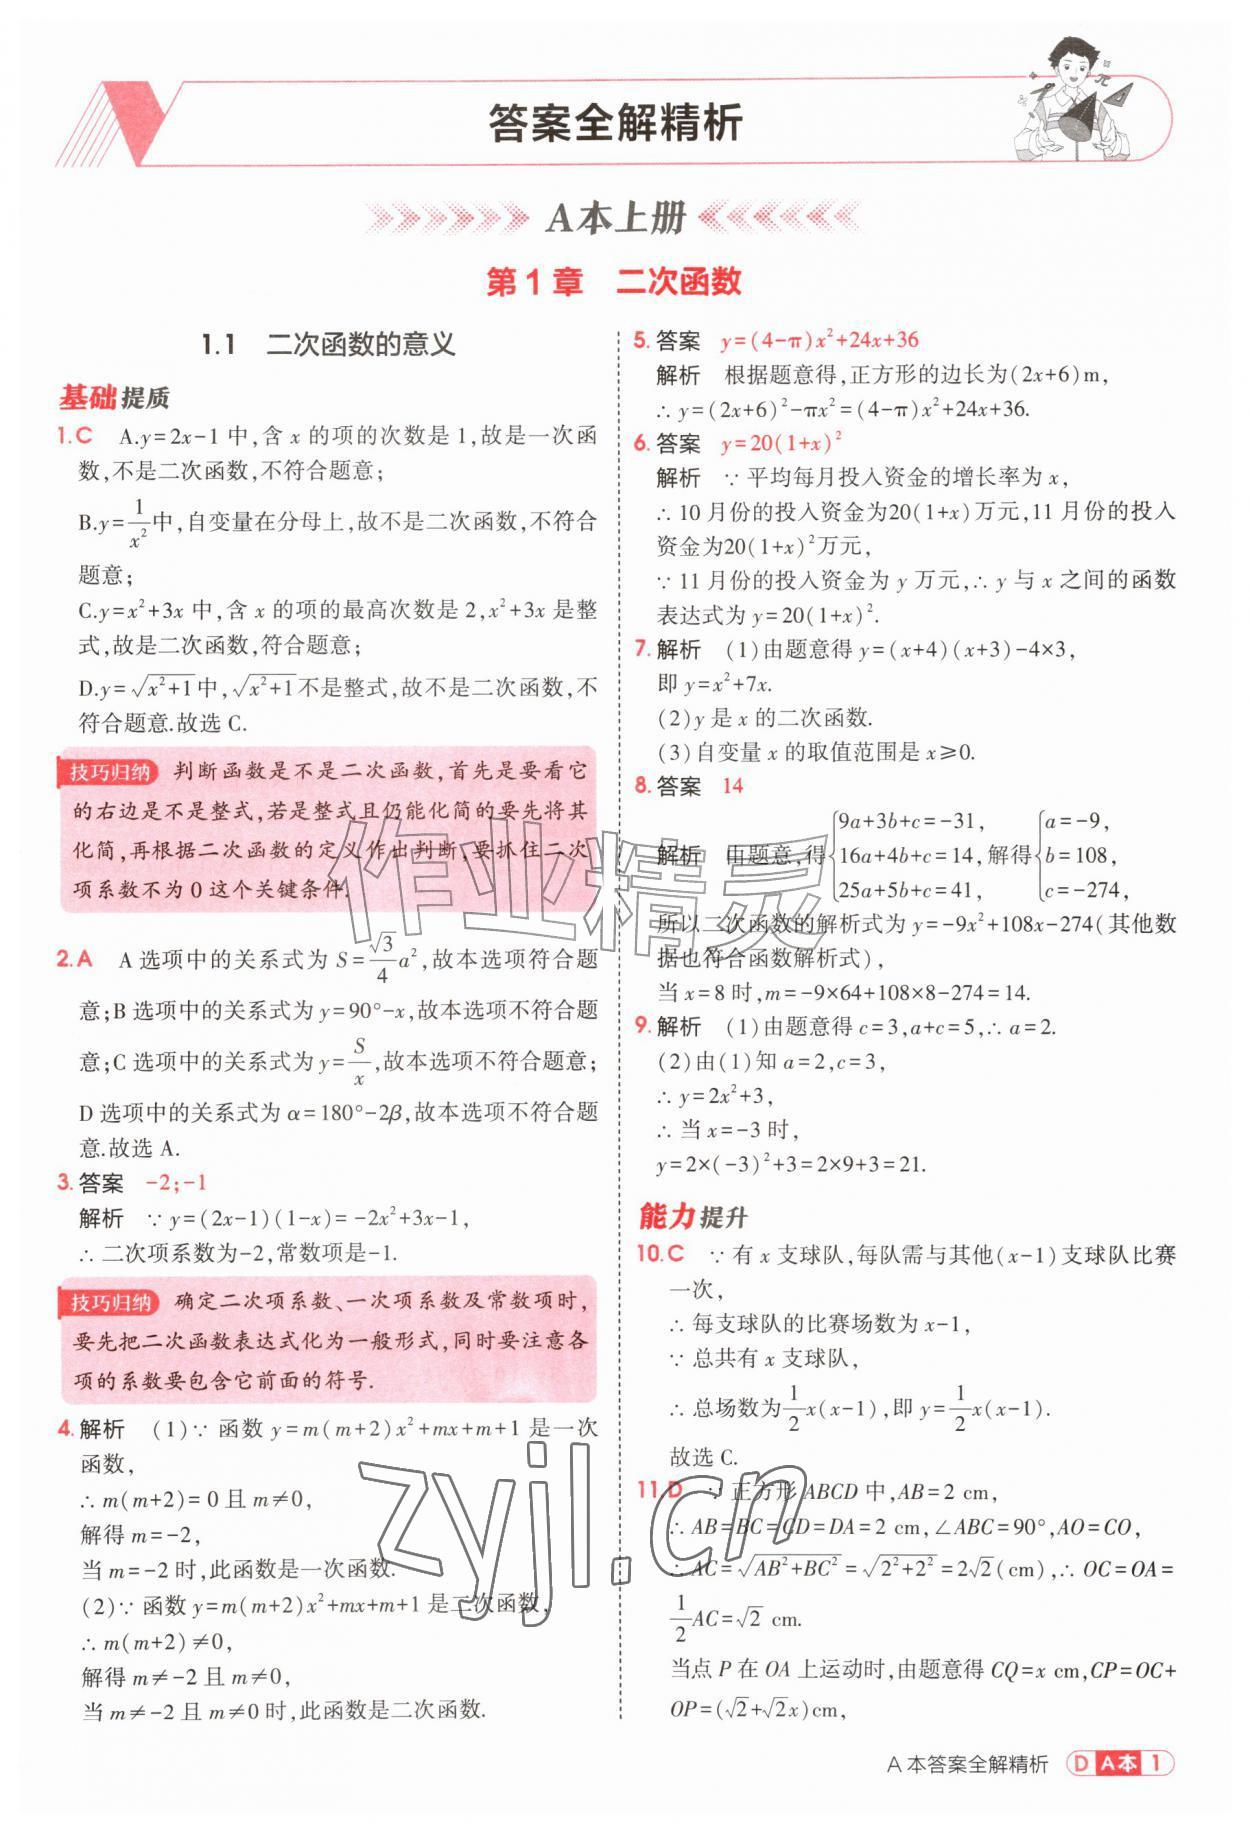 答案全解精析
A本上册
第1章 二次函数
1.1 二次函数的意义
基础提质
1.C A.y=2x-1中,含x的项的次数是1,故是一次函
数,不是二次函数,不符合题意;
B.y=\frac{1}{x^2}中,自变量在分母上,故不是二次函数,不符合
题意;
C.y=x²+3x中,含x的项的最高次数是2,x²+3x是整
式,故是二次函数,符合题意;
D.y=\sqrt{x²+1}中,\sqrt{x²+1}不是整式,故不是二次函数,不
符合题意.故选C.
技巧归纳 判断函数是不是二次函数,首先是要看它
的右边是不是整式,若是整式且仍能化简的要先将其
化简,再根据二次函数的定义作出判断,要抓住二次
项系数不为0这个关键条件.
2.A A选项中的关系式为S=\frac{\sqrt{3}}{4}a²,故本选项符合题
意;B选项中的关系式为y=90°-x,故本选项不符合题
意;C选项中的关系式为y=\frac{S}{x},故本选项不符合题意;
D选项中的关系式为α=180°-2β,故本选项不符合题
意.故选A.
3.答案 -2;-1
解析 ∵y=(2x-1)(1-x)=-2x²+3x-1,
∴二次项系数为-2,常数项是-1.
技巧归纳 确定二次项系数、一次项系数及常数项时,
要先把二次函数表达式化为一般形式,同时要注意各
项的系数要包含它前面的符号.
4.解析 (1)∵函数y=m(m+2)x²+mx+m+1是一次
函数,
∴m(m+2)=0且m≠0,
解得m=-2,
当m=-2时,此函数是一次函数.
(2)∵函数y=m(m+2)x²+mx+m+1是二次函数,
∴m(m+2)≠0,
解得m≠-2且m≠0,
当m≠-2且m≠0时,此函数是二次函数.
5.答案 y=(4-π)x²+24x+36
解析 根据题意得,正方形的边长为(2x+6)m,
∴y=(2x+6)²-πx²=(4-π)x²+24x+36.
6.答案 y=20(1+x)²
解析 ∵平均每月投入资金的增长率为x,
∴10月份的投入资金为20(1+x)万元,11月份的投入
资金为20(1+x)²万元,
∵11月份的投入资金为y万元,∴y与x之间的函数
表达式为y=20(1+x)².
7.解析 (1)由题意得y=(x+4)(x+3)-4×3,
即y=x²+7x.
(2)y是x的二次函数.
(3)自变量x的取值范围是x≥0.
8.答案 14
解析 由题意,得{9a+3b+c=-31, 16a+4b+c=14, 25a+5b+c=41, 解得{a=-9, b=108, c=-274,
所以二次函数的解析式为y=-9x²+108x-274(其他数
据也符合函数解析式),
当x=8时,m=-9×64+108×8-274=14.
9.解析 (1)由题意得c=3,a+c=5,∴a=2.
(2)由(1)知a=2,c=3,
∴y=2x²+3,
∴当x=-3时,
y=2×(-3)²+3=2×9+3=21.
能力提升
10.C ∵有x支球队,每队需与其他(x-1)支球队比赛
一次,
∴每支球队的比赛场数为x-1,
∵总共有x支球队,
∴总场数为\frac{1}{2}x(x-1),即y=\frac{1}{2}x(x-1).
故选C.
11.D ∵正方形ABCD中,AB=2 cm,
∴AB=BC=CD=DA=2 cm,∠ABC=90°,AO=CO,
∴AC=\sqrt{AB²+BC²}=\sqrt{2²+2²}=2\sqrt{2}(cm),∴OC=OA=
\frac{1}{2}AC=\sqrt{2} cm.
当点P在OA上运动时,由题意得CQ=x cm,CP=OC+
OP=(\sqrt{2}+\sqrt{2}x)cm,
A本答案全解精析 D A本 1
作业精灵
zyjl.cn